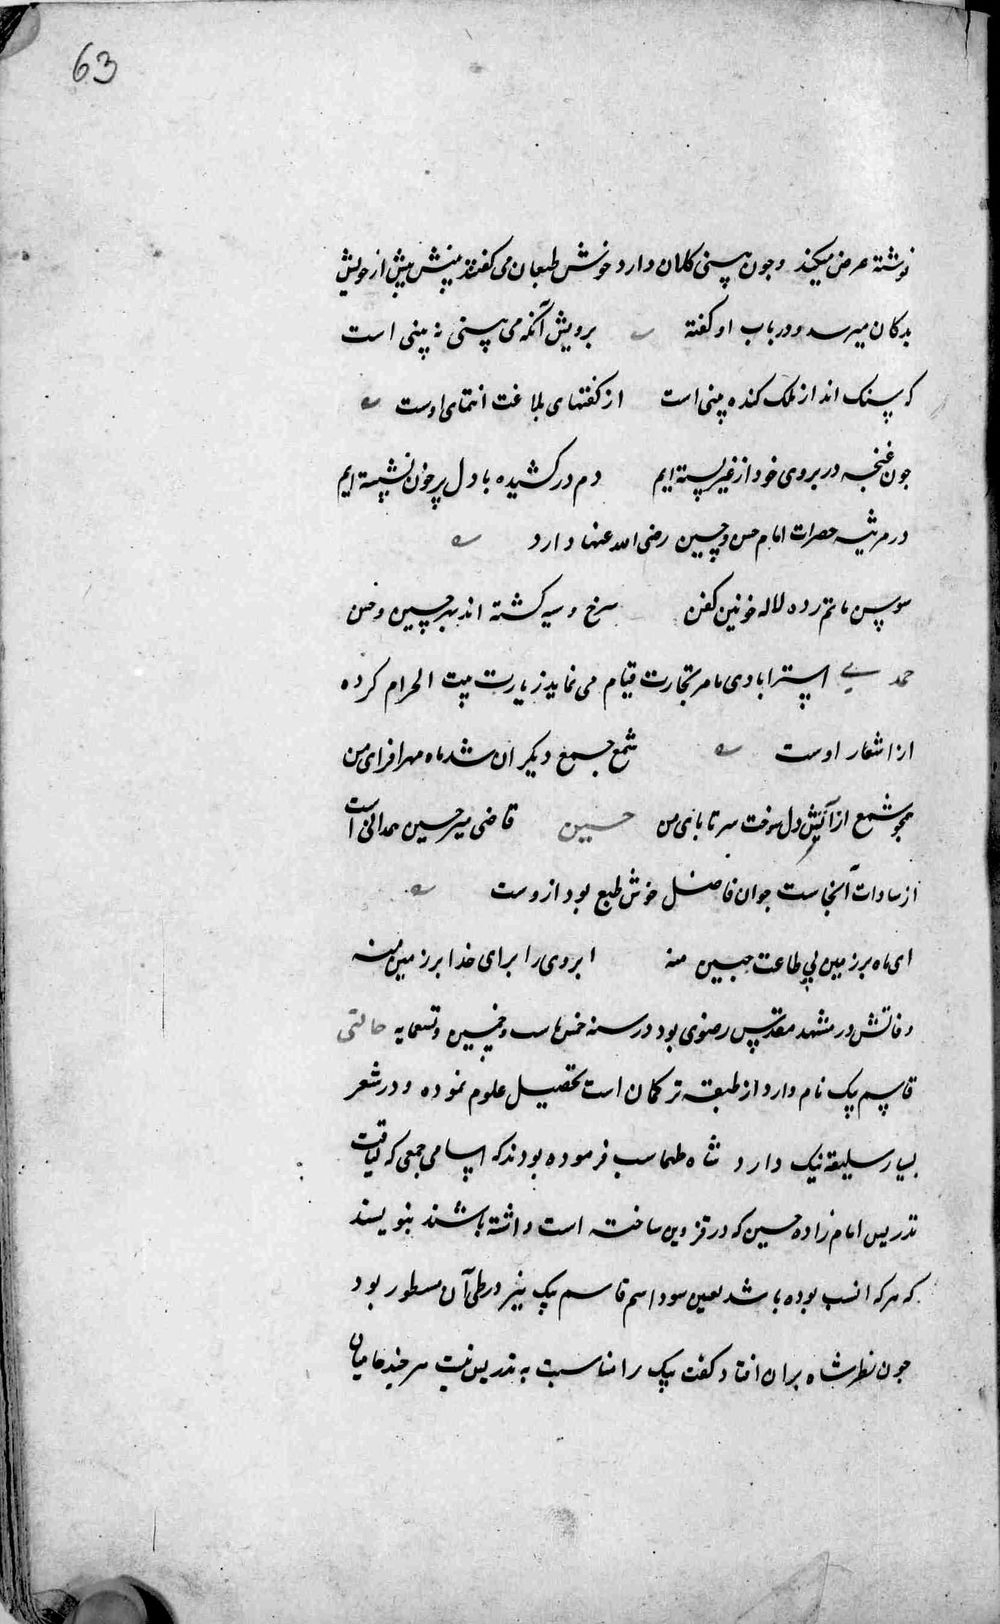 63
نوشته عرض میکند و چون بینی کلان دارد خوش طبعان می گفتند بینیش پیش از خویش
بدکان میرسد و در باب او گفته برویش آنکه می بینی نه بینی است
که سنک انداز ملک کنده بینی است از کفتهای بلاغت انتمای اوست
جون غنچه در بروی خود از غیر بسته ایم دم در کشیده با دل پر خون نشسته ایم
در مرثیه حضرات امام حسن و حسین رضی الله عنهما دارد
سوسن ماتم زده لاله خونین کفن سرخ و سیه کشته اند بهر حسین و حسن
حمدی استرابادی بامر تجارت قیام می نماید زیارت بیت الحرام کرده
از اشعار اوست شمع جمع دیکران شد ماه مهر افزای من
همجو شمع از آتش دل سوخت سر تا بای من حسین قاضی میر حسین همدانی است
از سادات آنجاست جوان فاضل خوش طبع بود ازوست
ای ماه بر زمین پی طاعت جبین منه ابروی را برای خدا بر زمین منه
وفاتش در مشهد مقدس رضوی بود در سنه خمس و خمسین و تسعمایه حالتی
قاسم بیک نام دارد از طبقه ترکمان است تحصیل علوم نموده و در شعر
بسیار سلیقه نیک دارد شاه طهماسب فرموده بودند که اسامی جمعی که لیاقت
تدریس امام زاده حسین که در قزوین ساخته است داشته باشند بنویسند
که هرکه انسب بوده باشد تعیین شود اسم قاسم بیک نیز در طی آن مسطور بود
جون نظر شاه بران افتاد کفت بیک را مناسبت به تدریس نیست هر چند حامیان